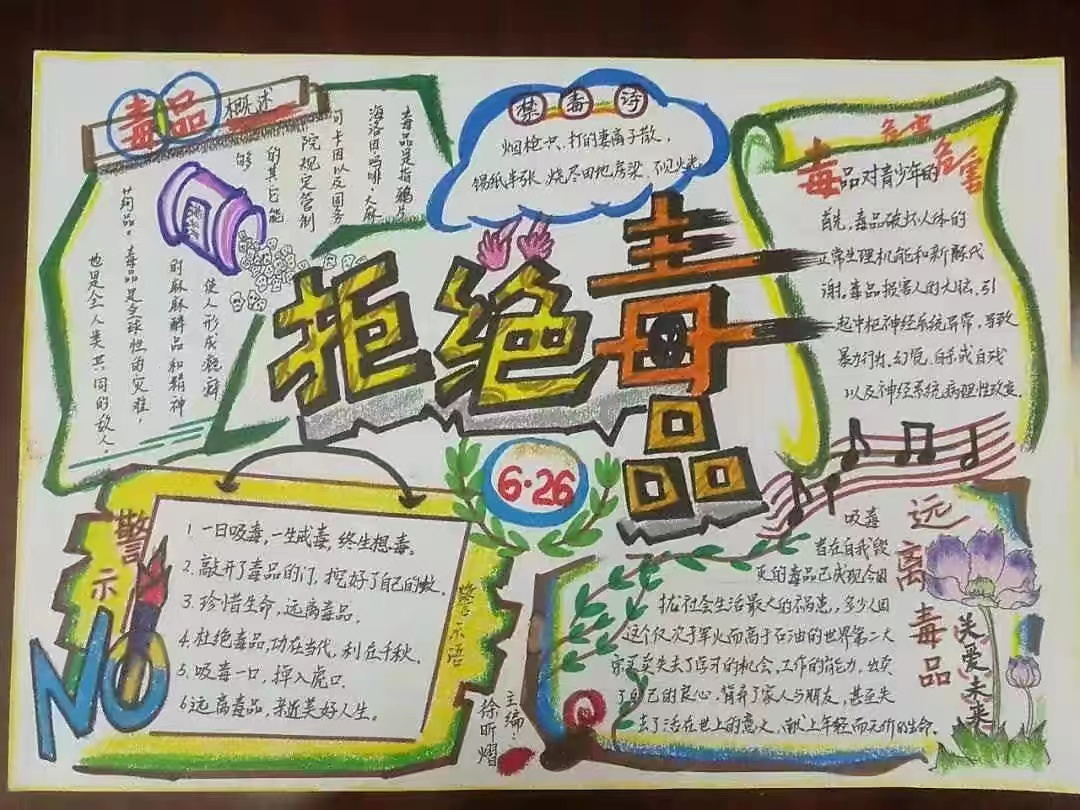 毒品概述
毒品是指鸦片
海洛因吗啡·大麻
可卡因以及国务
院规定管制
的其它能
够
使人形成瘾癖
的麻醉品和精神
药品。毒品是全球性的灾难，
也是全人类共同的敌人。
禁毒诗
烟枪一只、打的妻离子散、
锡纸半张、烧尽田地房梁、不见火光
拒绝毒品
6·26
危害
毒品对青少年的危害
首先，毒品破坏人体的
正常生理机能和新酥代
谢，毒品损害人的大脑，引
起中枢神经系统异常，导致
暴力行为、幻觉、自杀或自残
以及神经系统病理性改变。
警示
NO
1.一日吸毒，一生戒毒，终生想毒。
2.敲开了毒品的门，挖好了自己的坟。
3.珍惜生命，远离毒品。
4.杜绝毒品，功在当代，利在千秋。
5.吸毒一口，掉入虎口。
6远离毒品，亲近美好人生。
警示语
主编：
徐昕熠
远离毒品
关爱未来
吸毒
当在自我毁
灭的毒品已成现今困
扰社会生活最大的祸患，多少人因
这个仅次于军火而高于石油的世界第二大
宗买卖失去了的机会，工作的能力，出卖
了自己的良心，背弃了家人与朋友，甚至失
去了活在世上的意义，献上年轻而无价的生命。